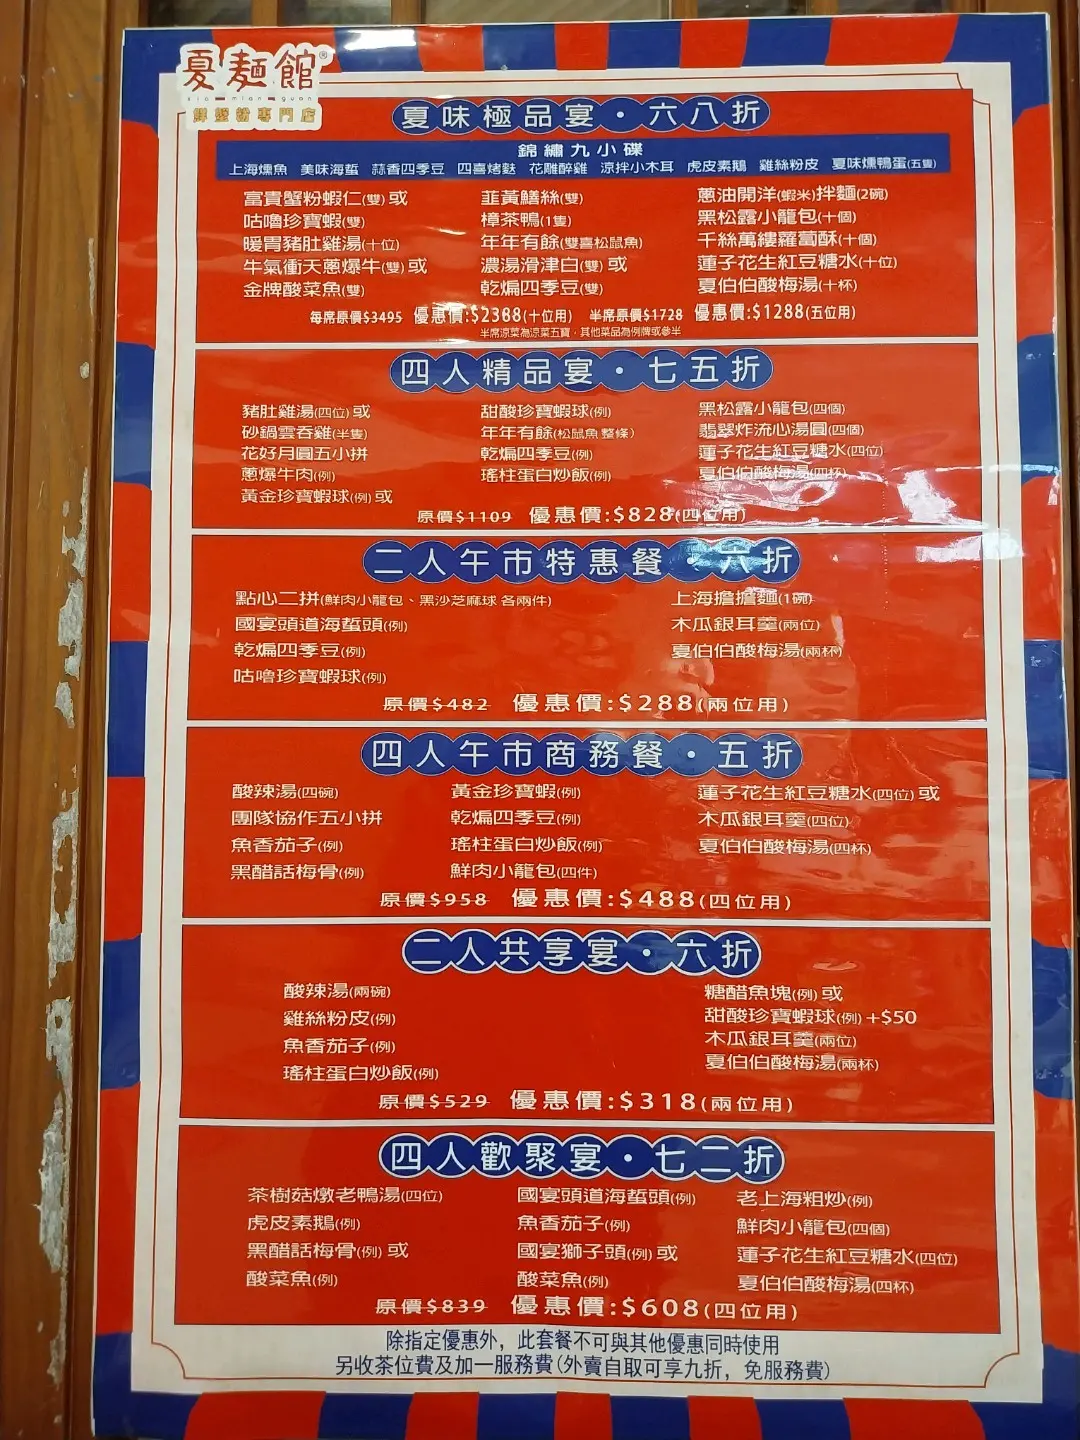 夏麵館®
xia mian guan
鮮蟹粉專門店
夏味極品宴・六八折
錦繡九小碟
上海燻魚 美味海蜇 蒜香四季豆 四喜烤麩 花雕醉雞 涼拌小木耳 虎皮素鵝 雞絲粉皮 夏味燻鴨蛋(五隻)
富貴蟹粉蝦仁(雙) 或
咕嚕珍寶蝦(雙)
暖胃豬肚雞湯(十位)
牛氣衝天蔥爆牛(雙) 或
金牌酸菜魚(雙)
韮黃鱔絲(雙)
樟茶鴨(1隻)
年年有餘(雙喜松鼠魚)
濃湯滑津白(雙) 或
乾煸四季豆(雙)
蔥油開洋(蝦米)拌麵(2碗)
黑松露小籠包(十個)
千絲萬縷蘿蔔酥(十個)
蓮子花生紅豆糖水(十位)
夏伯伯酸梅湯(十杯)
每席原價$3495 優惠價:$2388(十位用) 半席原價$1728 優惠價:$1288(五位用)
半席涼菜為涼菜五寶，其他菜品為例牌或參半
四人精品宴・七五折
豬肚雞湯(四位) 或
砂鍋雲吞雞(半隻)
花好月圓五小拼
蔥爆牛肉(例)
黃金珍寶蝦球(例) 或
甜酸珍寶蝦球(例)
年年有餘(松鼠魚 整條)
乾煸四季豆(例)
瑤柱蛋白炒飯(例)
黑松露小籠包(四個)
翡翠炸流心湯圓(四個)
蓮子花生紅豆糖水(四位)
夏伯伯酸梅湯(四杯)
原價$1109 優惠價:$828(四位用)
二人午市特惠餐・六折
點心二拼(鮮肉小籠包、黑沙芝麻球 各兩件)
國宴頭道海蜇頭(例)
乾煸四季豆(例)
咕嚕珍寶蝦球(例)
上海擔擔麵(1碗)
木瓜銀耳羹(兩位)
夏伯伯酸梅湯(兩杯)
原價$482 優惠價:$288(兩位用)
四人午市商務餐・五折
酸辣湯(四碗)
團隊協作五小拼
魚香茄子(例)
黑醋話梅骨(例)
黃金珍寶蝦(例)
乾煸四季豆(例)
瑤柱蛋白炒飯(例)
鮮肉小籠包(四件)
蓮子花生紅豆糖水(四位) 或
木瓜銀耳羹(四位)
夏伯伯酸梅湯(四杯)
原價$958 優惠價:$488(四位用)
二人共享宴・六折
酸辣湯(兩碗)
雞絲粉皮(例)
魚香茄子(例)
瑤柱蛋白炒飯(例)
糖醋魚塊(例) 或
甜酸珍寶蝦球(例) +$50
木瓜銀耳羹(兩位)
夏伯伯酸梅湯(兩杯)
原價$529 優惠價:$318(兩位用)
四人歡聚宴・七二折
茶樹菇燉老鴨湯(四位)
虎皮素鵝(例)
黑醋話梅骨(例) 或
酸菜魚(例)
國宴頭道海蜇頭(例)
魚香茄子(例)
國宴獅子頭(例) 或
酸菜魚(例)
老上海粗炒(例)
鮮肉小籠包(四個)
蓮子花生紅豆糖水(四位)
夏伯伯酸梅湯(四杯)
原價$839 優惠價:$608(四位用)
除指定優惠外，此套餐不可與其他優惠同時使用
另收茶位費及加一服務費(外賣自取可享九折，免服務費)